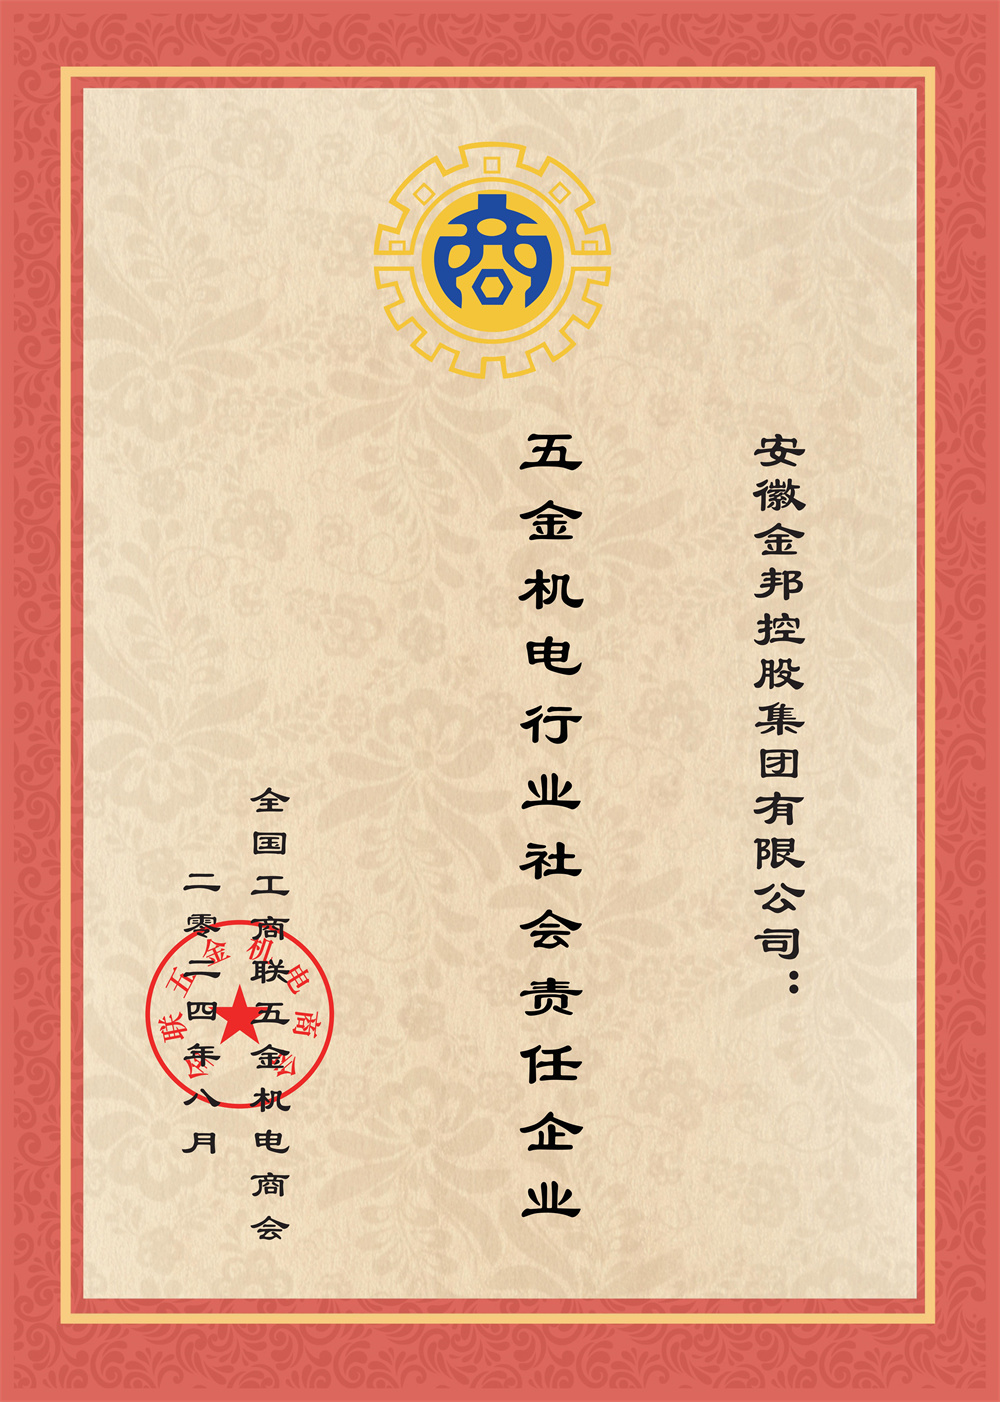 商
安徽金邦控股集团有限公司：
五金机电行业社会责任企业
全国工商联五金机电商会
二零二四年八月
联五金机电商会